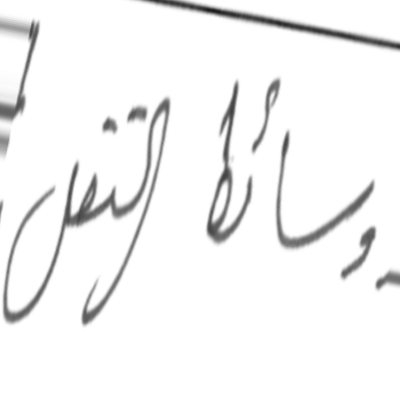 - وسائط النقل